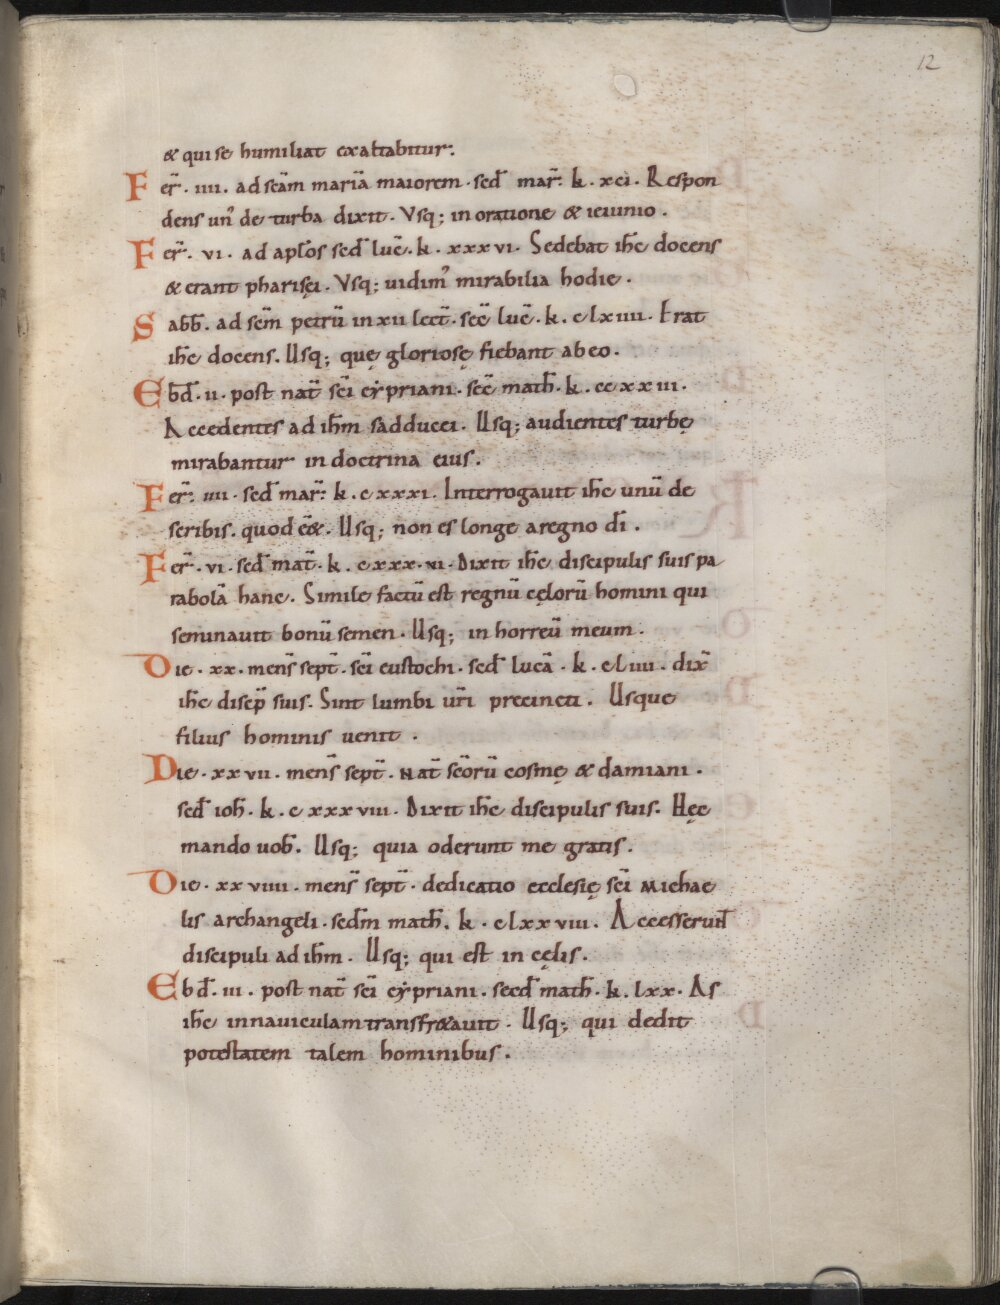 12
& qui se humiliat exaltabitur.
Fer̄. IIII. ad sc̄am mariā maiorem. scd̄ mar̄. k. xci. Respon
dens un' de turba dixit. Vsq; in oratione & ieiunio.
Fer̄. VI. ad apl̄os scd̄ luc̄. k. xxxvi. Sedebat ih̄c docens
& erant pharisęi. Vsq; uidim' mirabilia hodie.
Sabb̄. ad sc̄m petrū in xii lect̄. scc̄ luc̄. k. clxiiii. Erat
ih̄c docens. Usq; quę gloriosę fiebant ab eo.
Ebd̄. II. post nat̄ sc̄i cypriani. scc̄ math̄. k. ccxxiii.
Accedentes ad ih̄m sadducei. Usq; audientes turbę
mirabantur in doctrina eius.
Fer̄. IIII. scd̄ mar̄. k. cxxxi. Interrogauit ih̄c unū de
scribis. quod ē&. Usq; non es longe a regno dī.
Fer̄. VI. scd̄ mat̄. k. cxxx.vi. Dixit ih̄c discipulis suis pa
rabolā hanc. Simile factū est regnū cęlorū homini qui
seminauit bonū semen. Usq; in horreū meum.
Die. xx. mens̄ sept̄. sc̄i eustochi. scd̄ lucā. k. cliiii. dix̄
ih̄c discip̄ suis. Sint lumbi ur̄i precincti. Usque
filius hominis uenit.
Die. xxvii. mens̄ sept̄. Nat̄ sc̄orū cosmę & damiani.
scd̄ ioh̄. k. cxxxviii. Dixit ih̄c discipulis suis. Hęc
mando uob̄. Usq; quia oderunt me gratis.
Die. xxviiii. mens̄ sept̄. dedicatio ecclesię sc̄i Michae
lis archangeli. sedm̄ math̄. k. clxxviii. Accesserunt
discipuli ad ih̄m. Usq; qui est in cęlis.
Ebd̄. III. post nat̄ sc̄i cypriani. secd̄ math̄. k. lxx. As
ih̄c in nauiculam transfr&auit. Usq; qui dedit
potestatem talem hominibus.